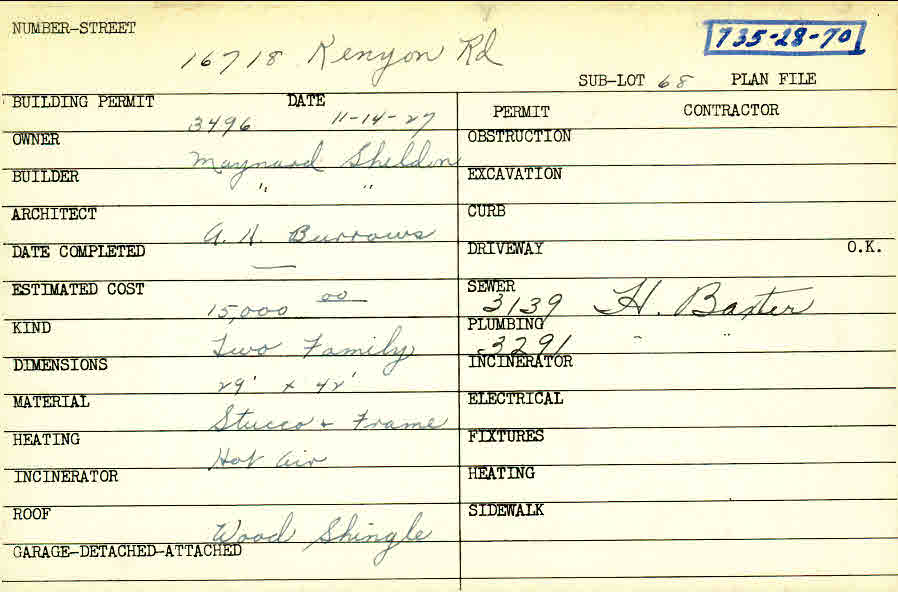 NUMBER-STREET
16718 Kenyon Rd
735-28-70
SUB-LOT 68 PLAN FILE
BUILDING PERMIT DATE
3496 11-14-27
PERMIT CONTRACTOR
OWNER
Maynard Sheldon
OBSTRUCTION
BUILDER
" "
EXCAVATION
ARCHITECT
A. H. Burrows
CURB
DATE COMPLETED
—
DRIVEWAY O.K.
ESTIMATED COST
15,000 00
SEWER
3139 H. Baxter
KIND
Two Family
PLUMBING
3291 " "
DIMENSIONS
29' x 42'
INCINERATOR
MATERIAL
Stucco + Frame
ELECTRICAL
HEATING
Hot Air
FIXTURES
INCINERATOR
HEATING
ROOF
Wood Shingle
SIDEWALK
GARAGE-DETACHED-ATTACHED